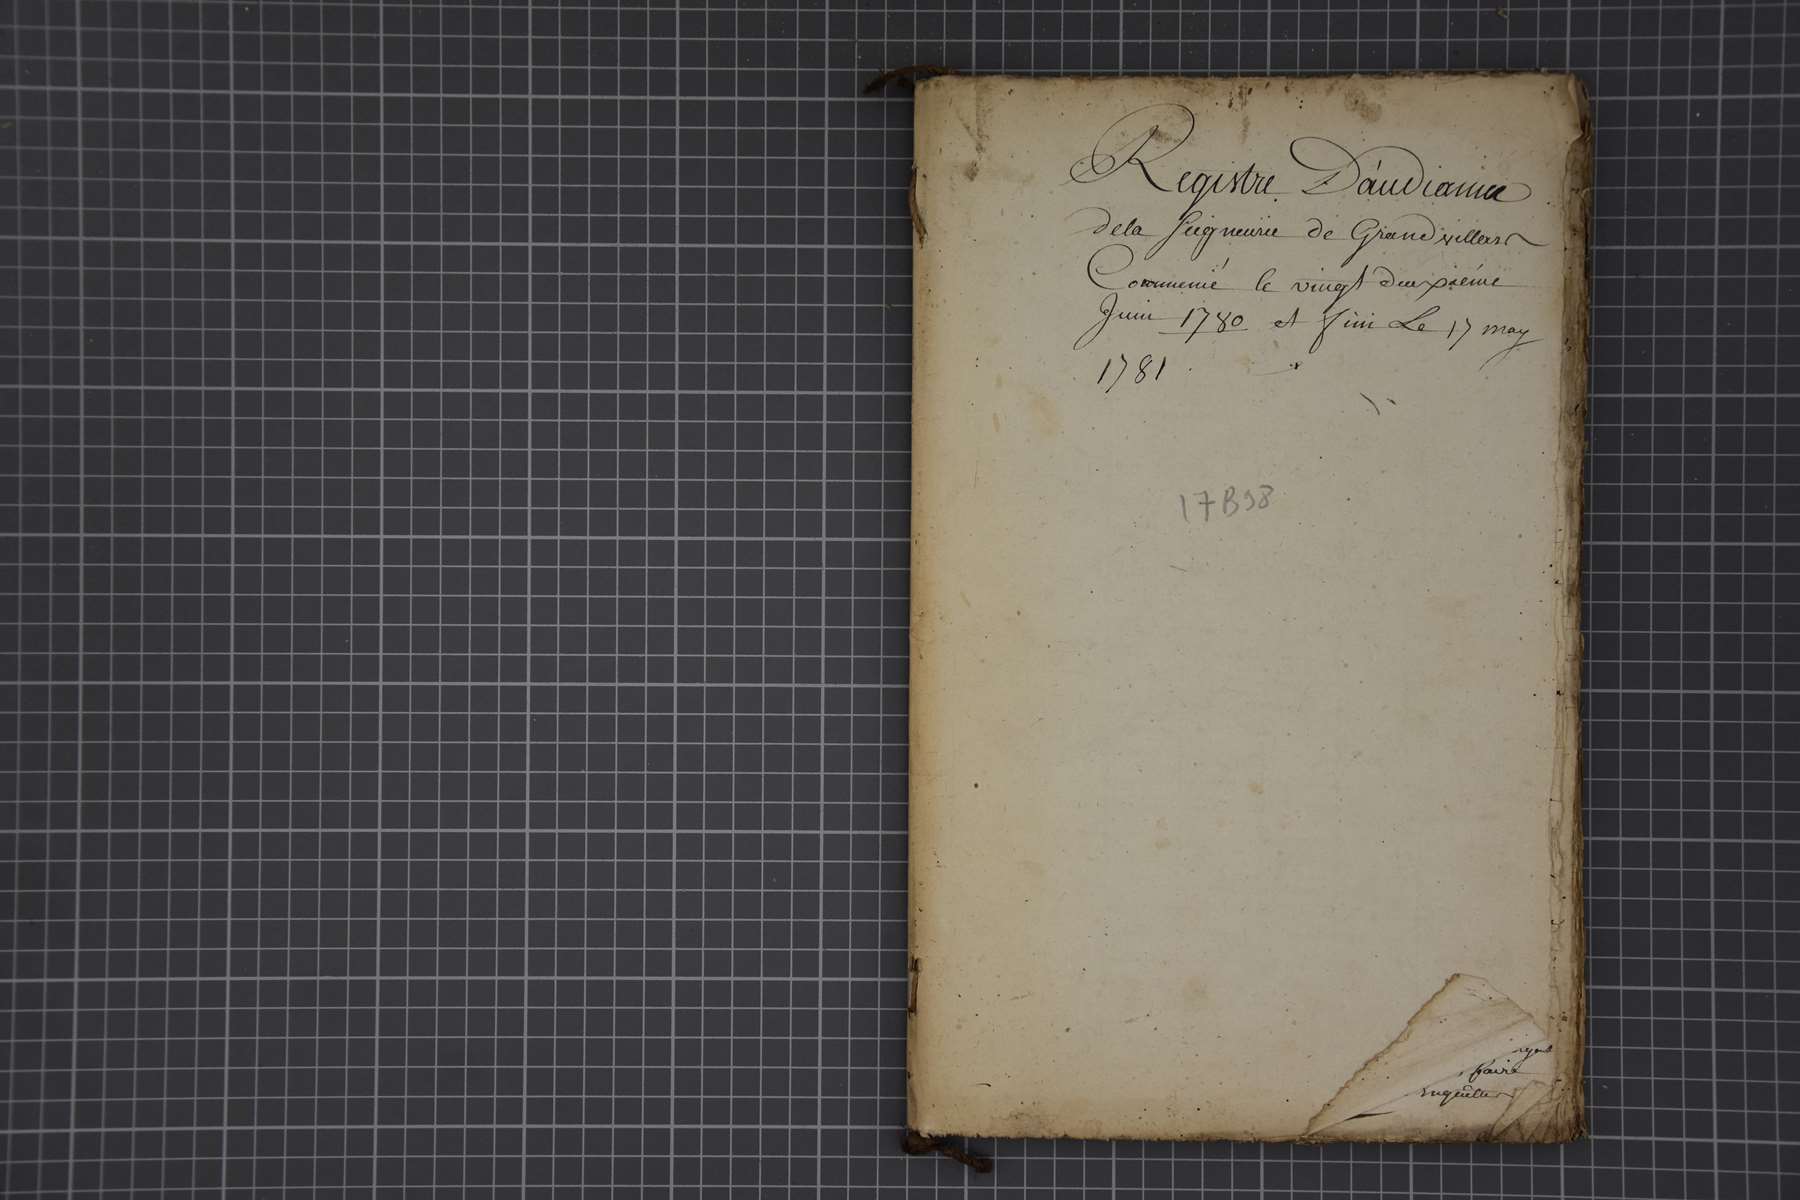 Registre D'audiance
dela Seigneurie de Grandvillars
Commencé le vingt deuxiéme
Juin 1780 et fini Le 17 may
1781
17B98
faire